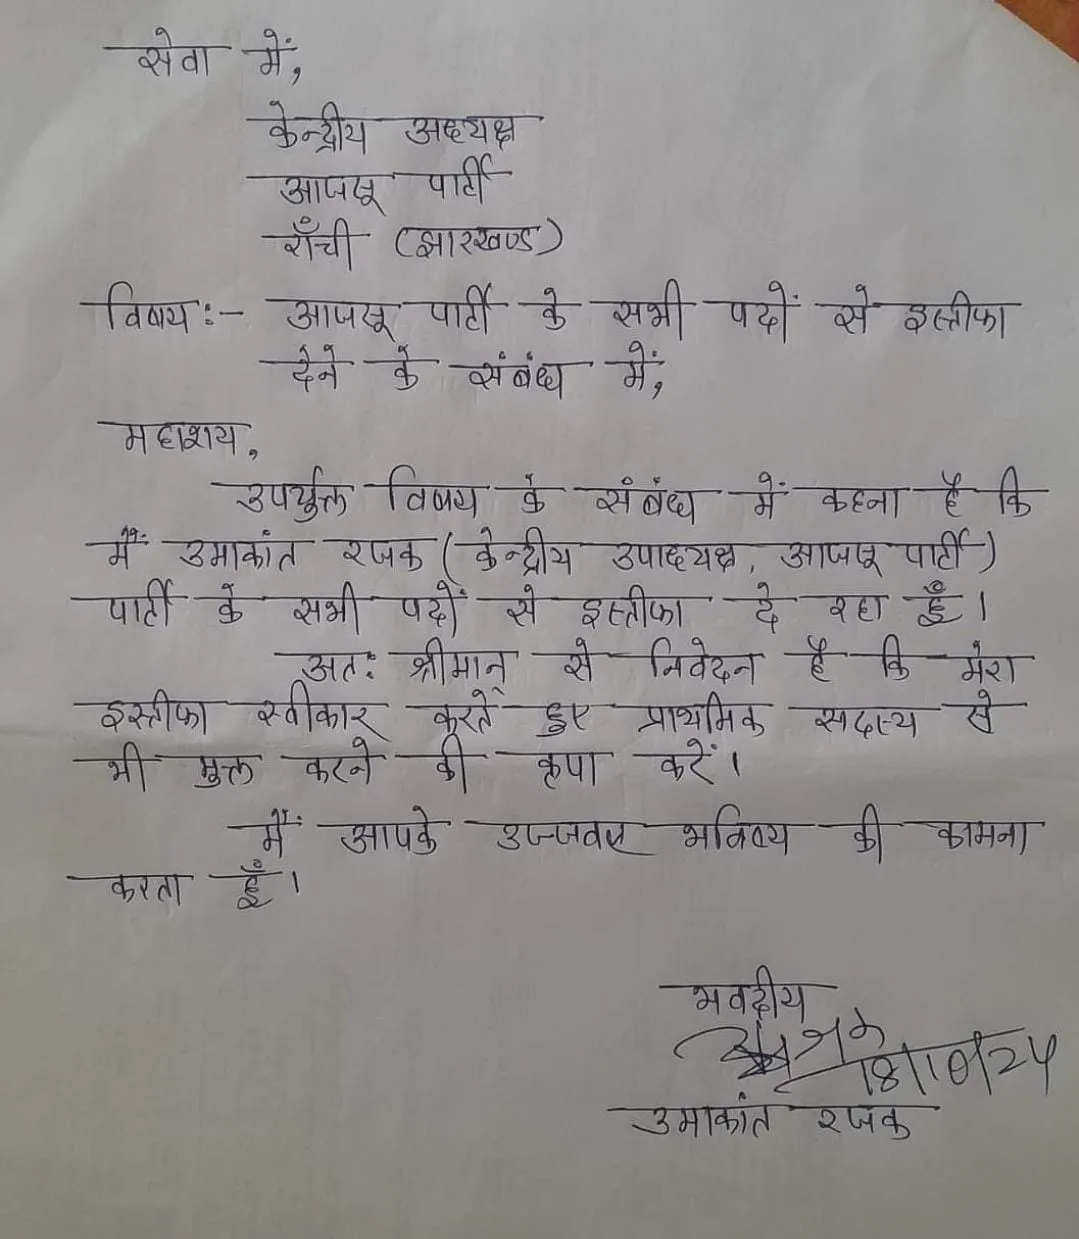 सेवा में,
केन्द्रीय अध्यक्ष
आजसू पार्टी
राँची (झारखण्ड)
विषय:- आजसू पार्टी के सभी पदों से इस्तीफा
देने के संबंध में,
महाशय,
उपर्युक्त विषय के संबंध में कहना है कि
मैं उमाकांत रजक (केन्द्रीय उपाध्यक्ष, आजसू पार्टी)
पार्टी के सभी पदों से इस्तीफा दे रहा हूँ।
अत: श्रीमान् से निवेदन है कि मेरा
इस्तीफा स्वीकार करते हुए प्राथमिक सदस्य से
भी मुक्त करने की कृपा करें।
मैं आपके उज्जवल भविष्य की कामना
करता हूँ।
भवदीय
18/10/24
उमाकांत रजक